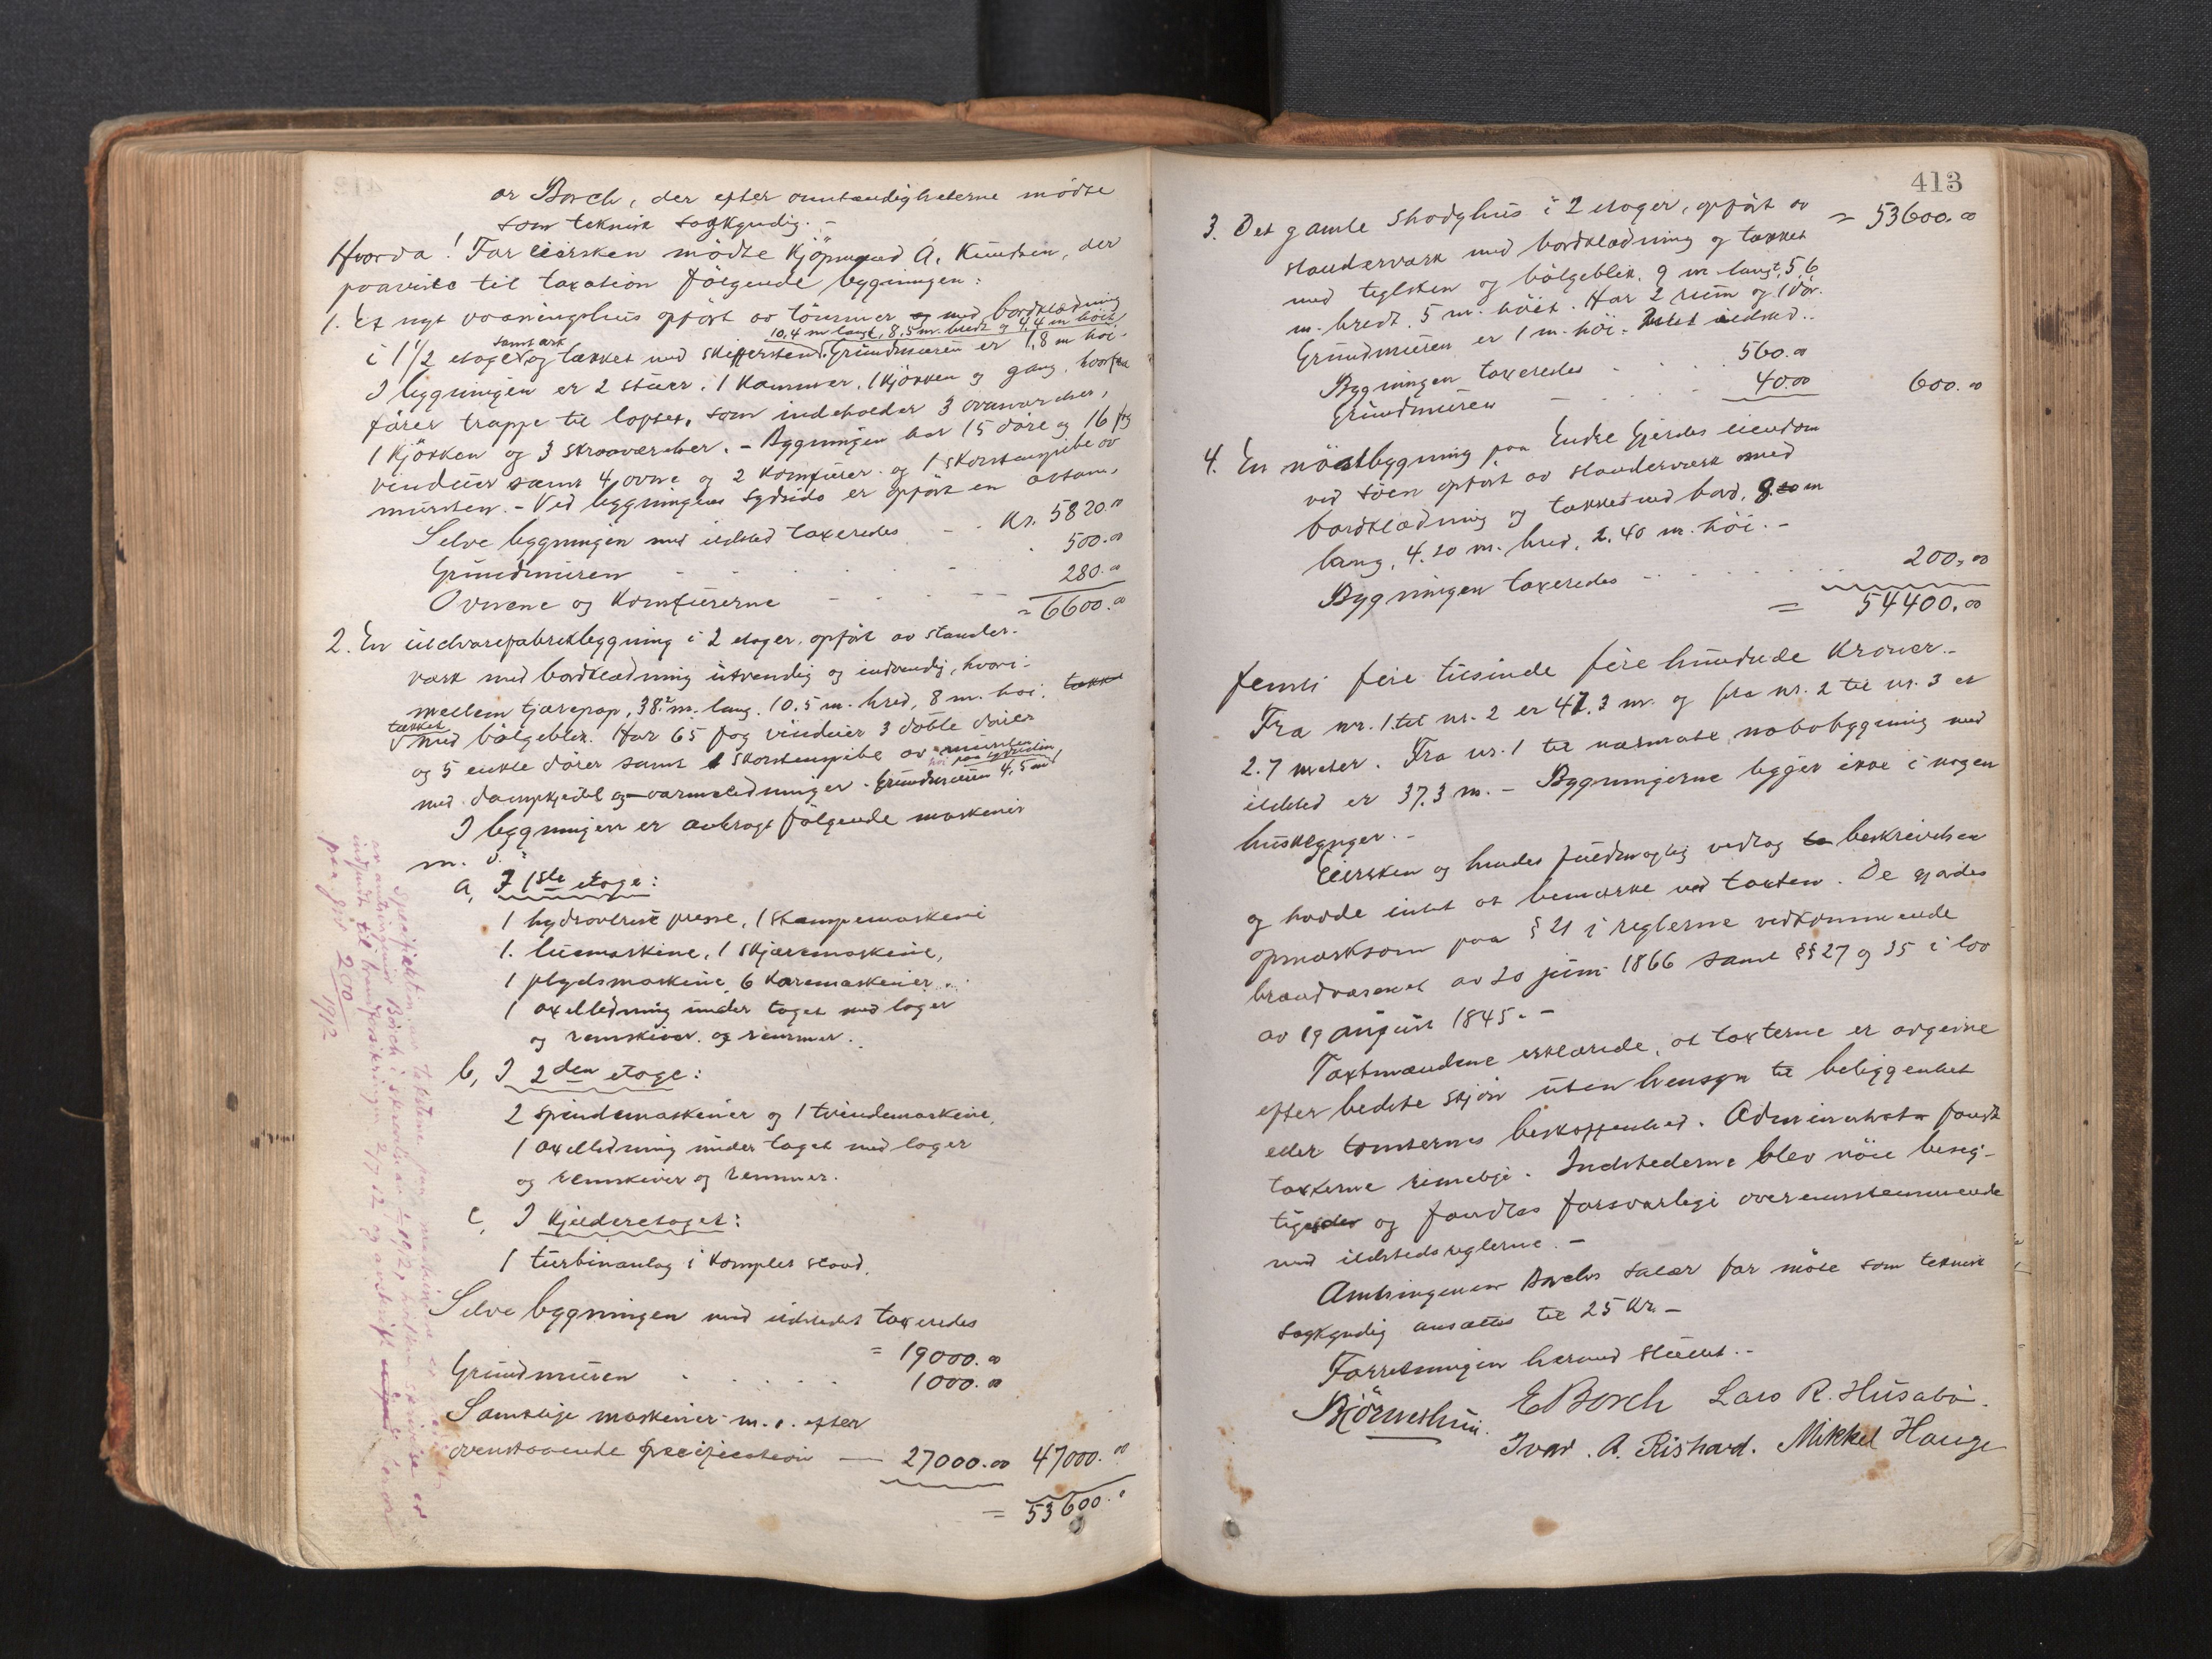 or Borch, der efter omstændigheterne mödte
som teknisk sagkyndig. -
Hvorda! For eiersken mödte Kjöpmand A. Knudsen, der
paaviste til taxation fölgende bygningen:
1. Et nyt vaaningshus opfört av tömmer og med bordklædning
10,4 m langt, 8,5 m. bredt og 4,4 m höit
i 1 1/2 etage samt ark og tækket med skiffersten. Grundmuren er 1,8 m höi.
I bygningen er 2 stuer, 1 kammer, 1 kjökken og gang, hvorfra
förer trappe til loftet, som indeholder 3 ovnværelser,
1 kjökken og 3 skraaværelser. - Bygningen har 15 döre og 16 fag
vinduer samt 4 ovne og 2 komfurer og 1 skorstenspibe av
mursten. - Ved bygningens sydside er opfört en
Selve bygningen med ildsted taxeredes - . Kr. 5820.00
Grundmuren - . . . . - . 500.00
Ovnene og komfurerne - . - . - - 280.00
= 6600.00
2. En uldvarefabrikbygning i 2 etager, opfört av stander-
værk med bordklædning utvendig og indvendig, hvori-
mellem tjærepap, 38.2 m. lang. 10.5 m. bred, 8 m. höi. tækket
tækket med bölgeblik. Har 65 fag vinduer 3 doble dörer
og 5 enkle dörer samt 1 skorstenspibe av mursten
höi paa sydsiden
med dampkjedel og varmeledninger. Grundmuren 4,5 m
I bygningen er anbragt fölgende maskiner
m. v.:
a, I 1ste etage:
1 hydraulisk presse, 1 stampemaskine
1. luemaskine, 1 skjæremaskine,
1 plydsmaskine, 6 karemaskiner. .
1 axelledning under taget med lager
og remskiver og remmer.
b, I 2den etage:
2 spindemaskiner og 1 tvindemaskine,
1 axelledning under taget med lager
og remskiver og remmer.
c, I kjelderetaget:
1 turbinanlæg i komplet stand.
Selve bygningen med ildstedet taxeredes
= 19000.00
Grundmuren . . . . . 1000.00
Samtlige maskiner m. v. efter
ovenstaaende specification — 27000.00 47000.00
= 53600.00
Specifiktion over taksterne paa maskinene er
av amtsingeniör Borch i skrivelse av 1912, hvilken skrivelse er
indsendt til brandforsikringen 2/7 12 og avskrift
paa jnr 200/1912
413
3. Det gamle shodyhus i 2 etager, opfört av = 53600.00
standerværk med bordklædning og tækket
med teglsten og bölgeblik. 9 m langt, 5,6
m. bredt, 5 m. höit. Har 2 rum og 1 dör.
Grundmuren er 1 m. höi. Intet ildsted..
Bygningen taxeredes . . . 560.00
Grundmuren — . . - 40.00 600.00
4. En nöstbygning paa Endre Gjerdes eiendom
ved söen opfört av standerværk med
bordklædning og tækket med bord, 8 m
lang, 4.20 m. bred, 2.40 m. höi. -
Bygningen taxeredes - . . . . . 200.00
= 54400.00
femti fire tusinde fire hundrede kroner.-
Fra nr. 1 til nr. 2 er 47.3 m. og fra nr. 2 til nr. 3 er
2.7 meter. Fra nr. 1 til nærmeste nabobygning med
ildsted er 37,3 m. - Bygningerne ligger ikke i nogen
husklynger. -
Eiersken og hendes fuldmægtig vedtog beskrivelsen
og hadde intet at bemærke ved taxten. De gjordes
opmærksom paa § 21 i reglerne vedkommende
brandvæsenet av 20 juni 1866 samt §§ 27 og 35 i lov
av 19 august 1845. -
Taxtmændene erklærede, at taxterne er avgivne
efter bedste skjön uten hensyn til beliggenhet
eller tomternes beskaffenhed. Administrator fandt
taxterne rimelige. Indstederne blev nöie besig-
tiget og fandtes forsvarlige overensstemmende
med ildstedsreglerne. -
Amtsingeniör Borchs salær for möte som teknisk
sagkyndig ansættes til 25 Kr. -
Forretningen hermed sluttet. -
Björneshin. E Borch Lars R. Husabö.
Ivar. A. Rishard. Mikkel Hauge